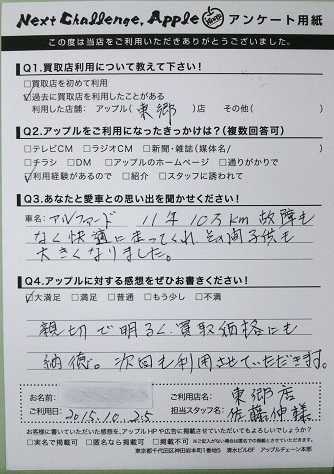 Next Challenge, Apple アンケート用紙
この度は当店をご利用いただきありがとうございました。
Q1.買取店利用について教えて下さい!
□買取店を初めて利用
☑過去に買取店を利用したことがある
利用した店舗: アップル( 東郷 )店 その他( )
Q2.アップルをご利用になったきっかけは?(複数回答可)
□テレビCM □ラジオCM □新聞・雑誌(媒体名/ )
□チラシ □DM □アップルのホームページ □通りがかりで
☑利用経験があるので □紹介 □スタッフに誘われて
Q3.あなたと愛車との思い出を聞かせください!
車名: アルファード 11年 10万km 故障も
なく快適に走ってくれ、その間子供も
大きくなりました。
Q4.アップルに対する感想をぜひお書きください!
☑大満足 □満足 □普通 □もう少し □不満
親切で明るく、買取価格にも
納得。次回も利用させていただきます。
お名前: ご利用店名: 東郷店
ご利用日: 2015.10.25 担当スタッフ名: 佐藤伸様
お客様に書いていただいた感想を、アップルHPや広告に掲載させていただいてもよろしいでしょうか?
□実名で掲載可 □匿名なら掲載可 □掲載不可 ※ご記入がない場合は匿名での掲載とさせていただきます。
東京都千代田区神田岩本町1番地5 清水ビル6F アップルチェーン本部